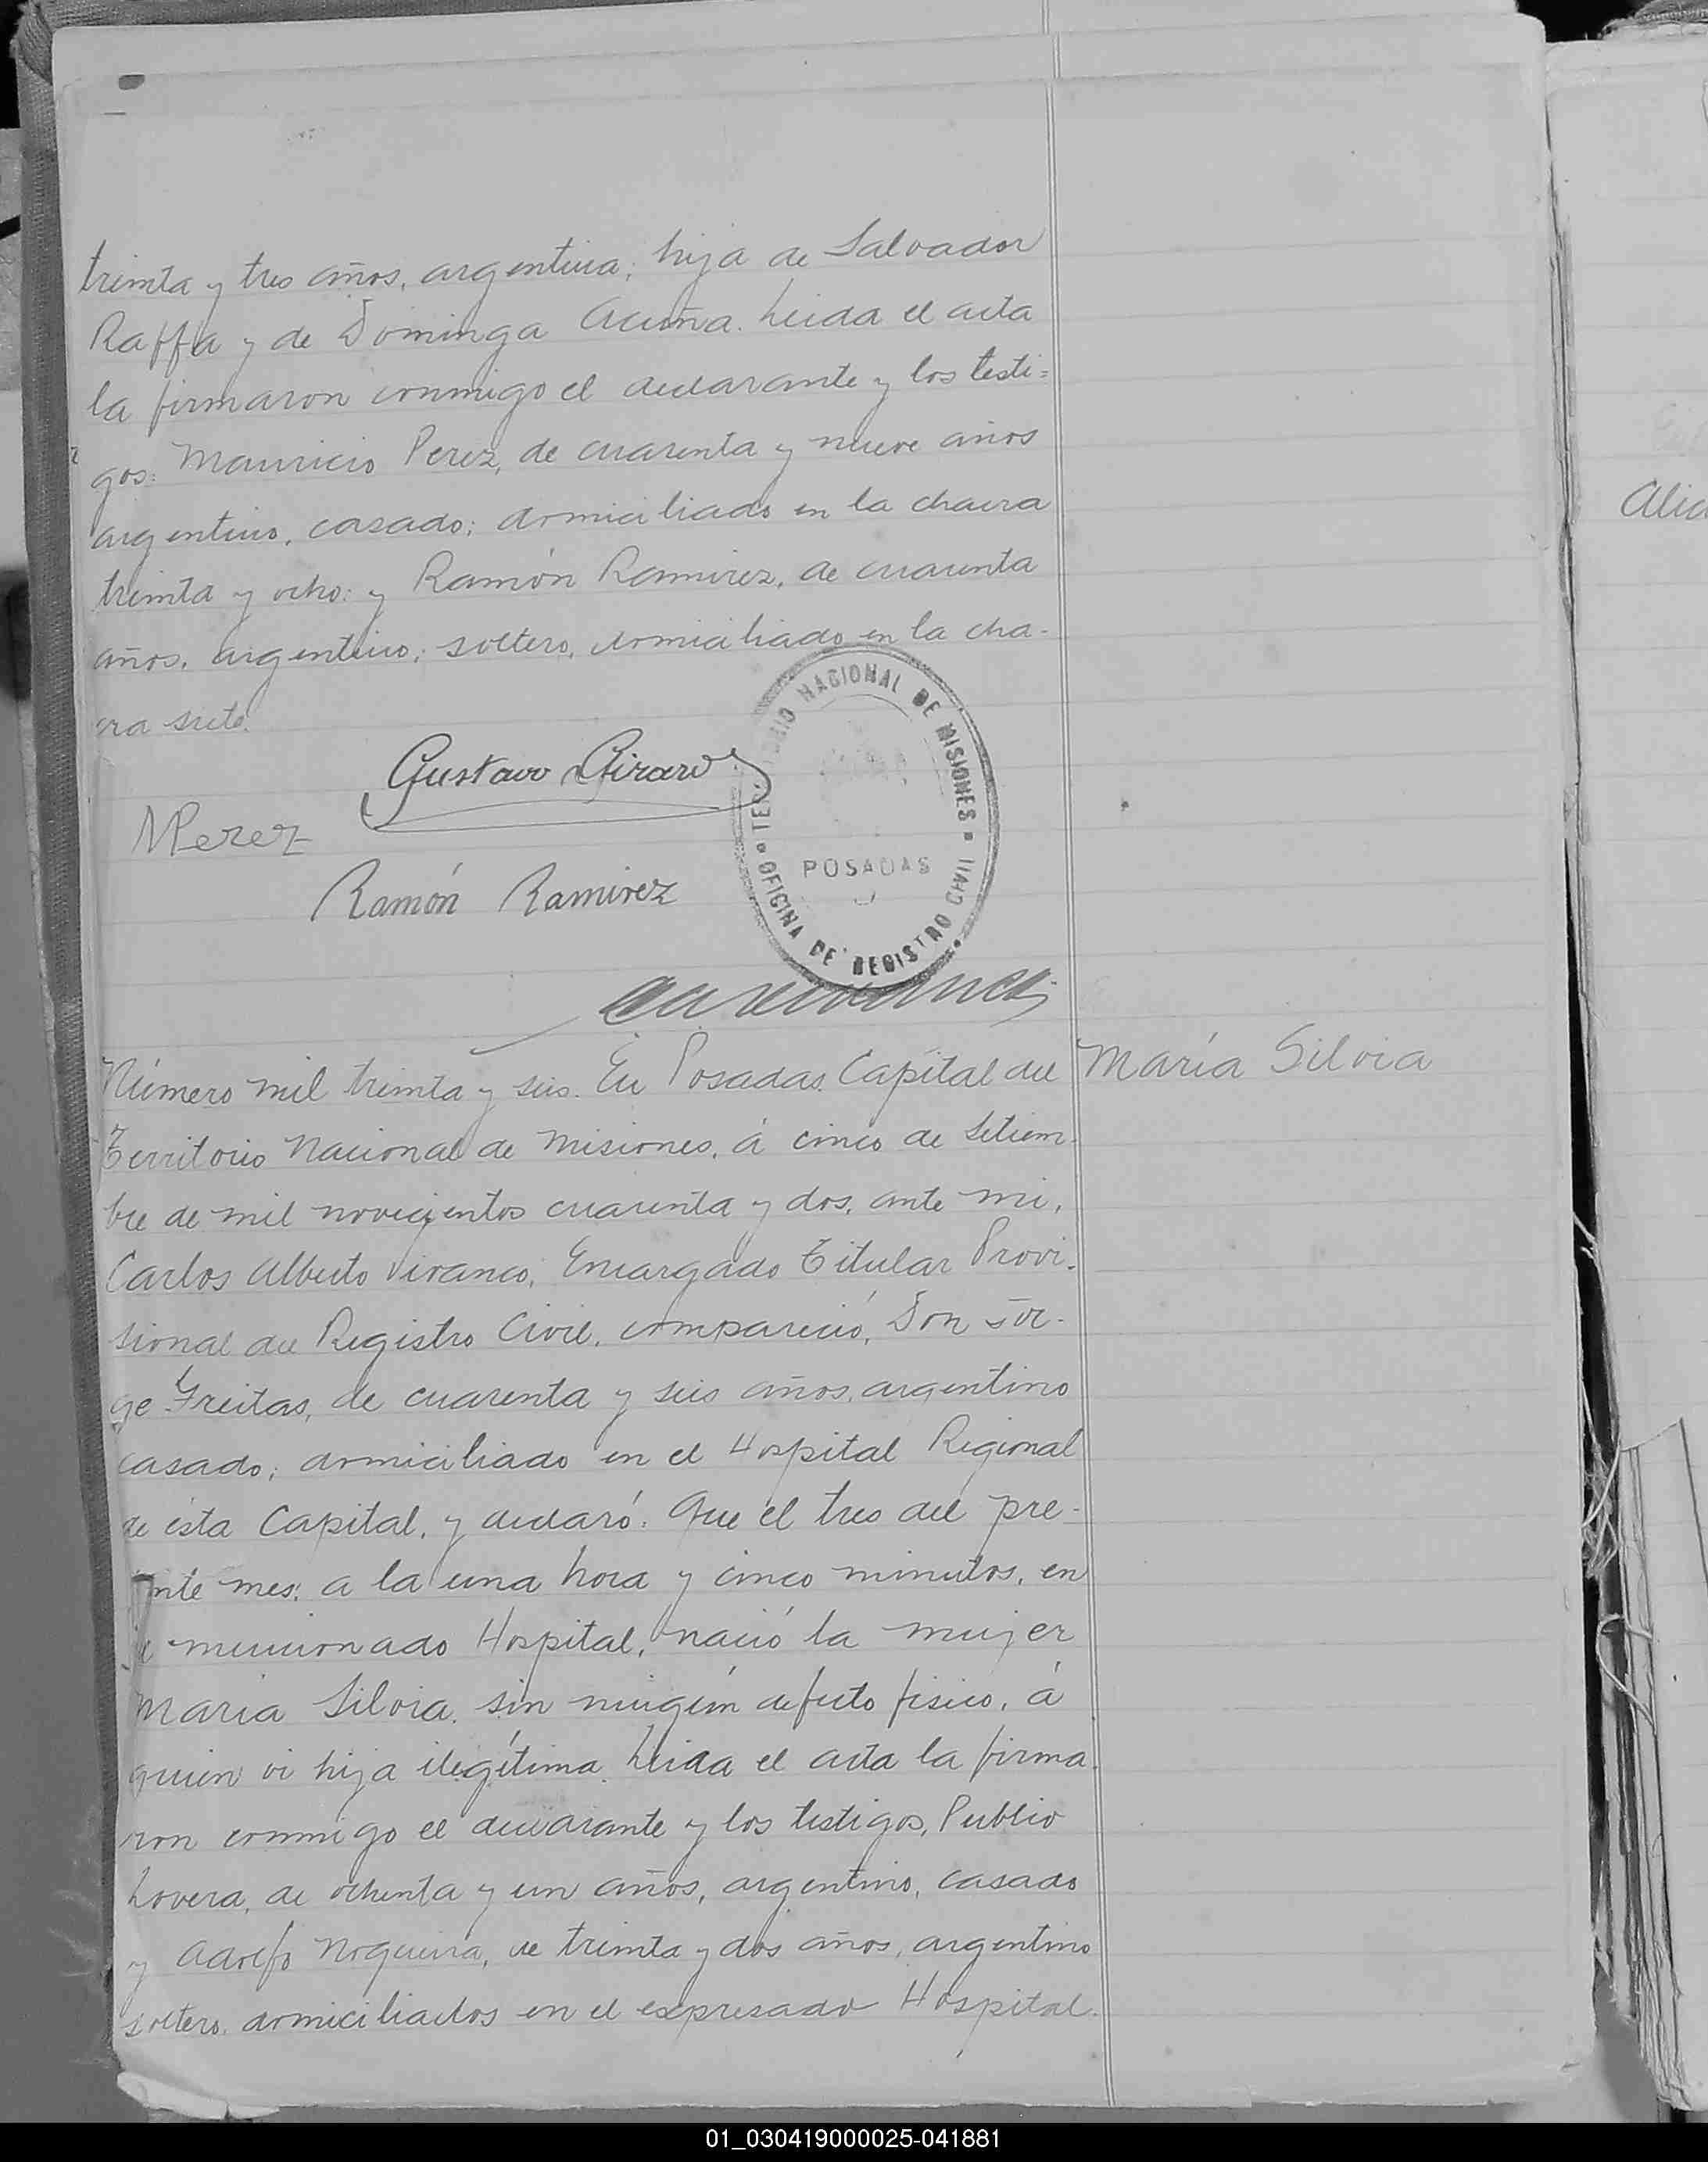 treinta y tres años, argentina; hija de Salvador
Raffa y de Dominga Acuña. Leida el acta
la firmaron conmigo el declarante y los testi=
gos: Mauricio Perez, de cuarenta y nueve años
argentino, casado; domiciliado en la chacra
treinta y ocho: y Ramón Ramirez, de cuarenta
años, argentino; soltero, domiciliado en la cha-
cra siete.
Gustavo Girard
MPerez
Ramón Ramirez
TERRITORIO NACIONAL DE MISIONES
POSADAS
OFICINA DE REGISTRO CIVIL
Número mil treinta y seis. En Posadas Capital del
María Silvia
Territorio Nacional de Misiones, á cinco de Setiem-
bre de mil novecientos cuarenta y dos, ante mi,
Carlos Alberto Vivanco, Encargado Titular Provi-
sional del Registro Civil, compareció, Don Jor-
ge Freitas, de cuarenta y seis años, argentino
casado; domiciliado en el Hospital Regional
de ésta Capital, y declaró: Que el tres del pre-
ente mes; a la una hora y cinco minutos, en
el mencionado Hospital, nació la mujer
María Silvia, sin ningún defecto fisico, á
quien vi hija ilegítima. Leida el acta la firma-
ron conmigo el declarante y los testigos, Publio
Lovera, de ochenta y un años, argentino, casado
y Adolfo Nogueira, de treinta y dos años, argentino
soltero, domiciliados en el expresado Hospital.
Alic
01_030419000025-041881